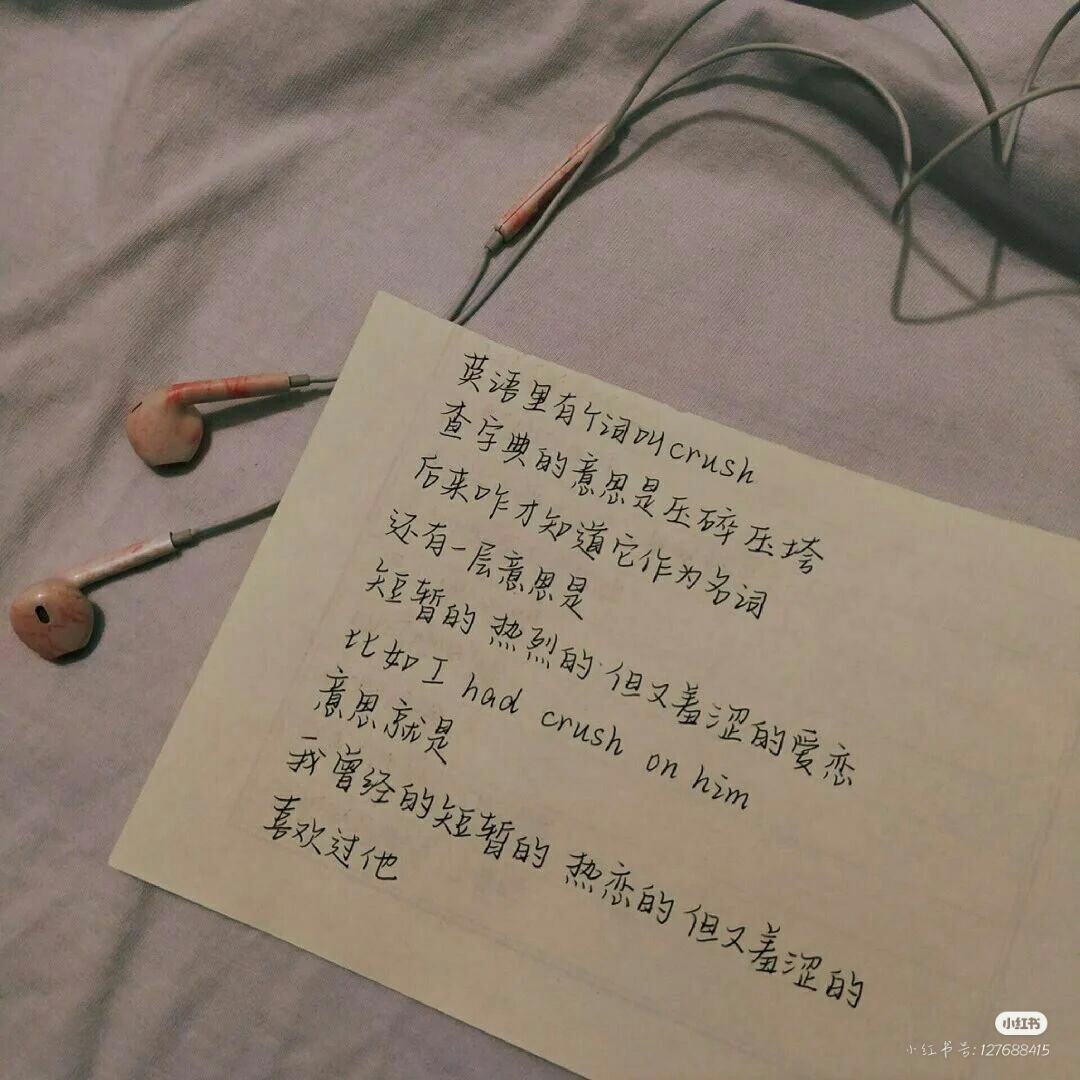 英语里有个词叫crush
查字典的意思是压碎压垮
后来咋才知道它作为名词
还有一层意思是
短暂的 热烈的·但又羞涩的爱恋
比如I had crush on him
意思就是
我曾经的短暂的 热恋的但又羞涩的
喜欢过他
小红书
小红书号:127688415